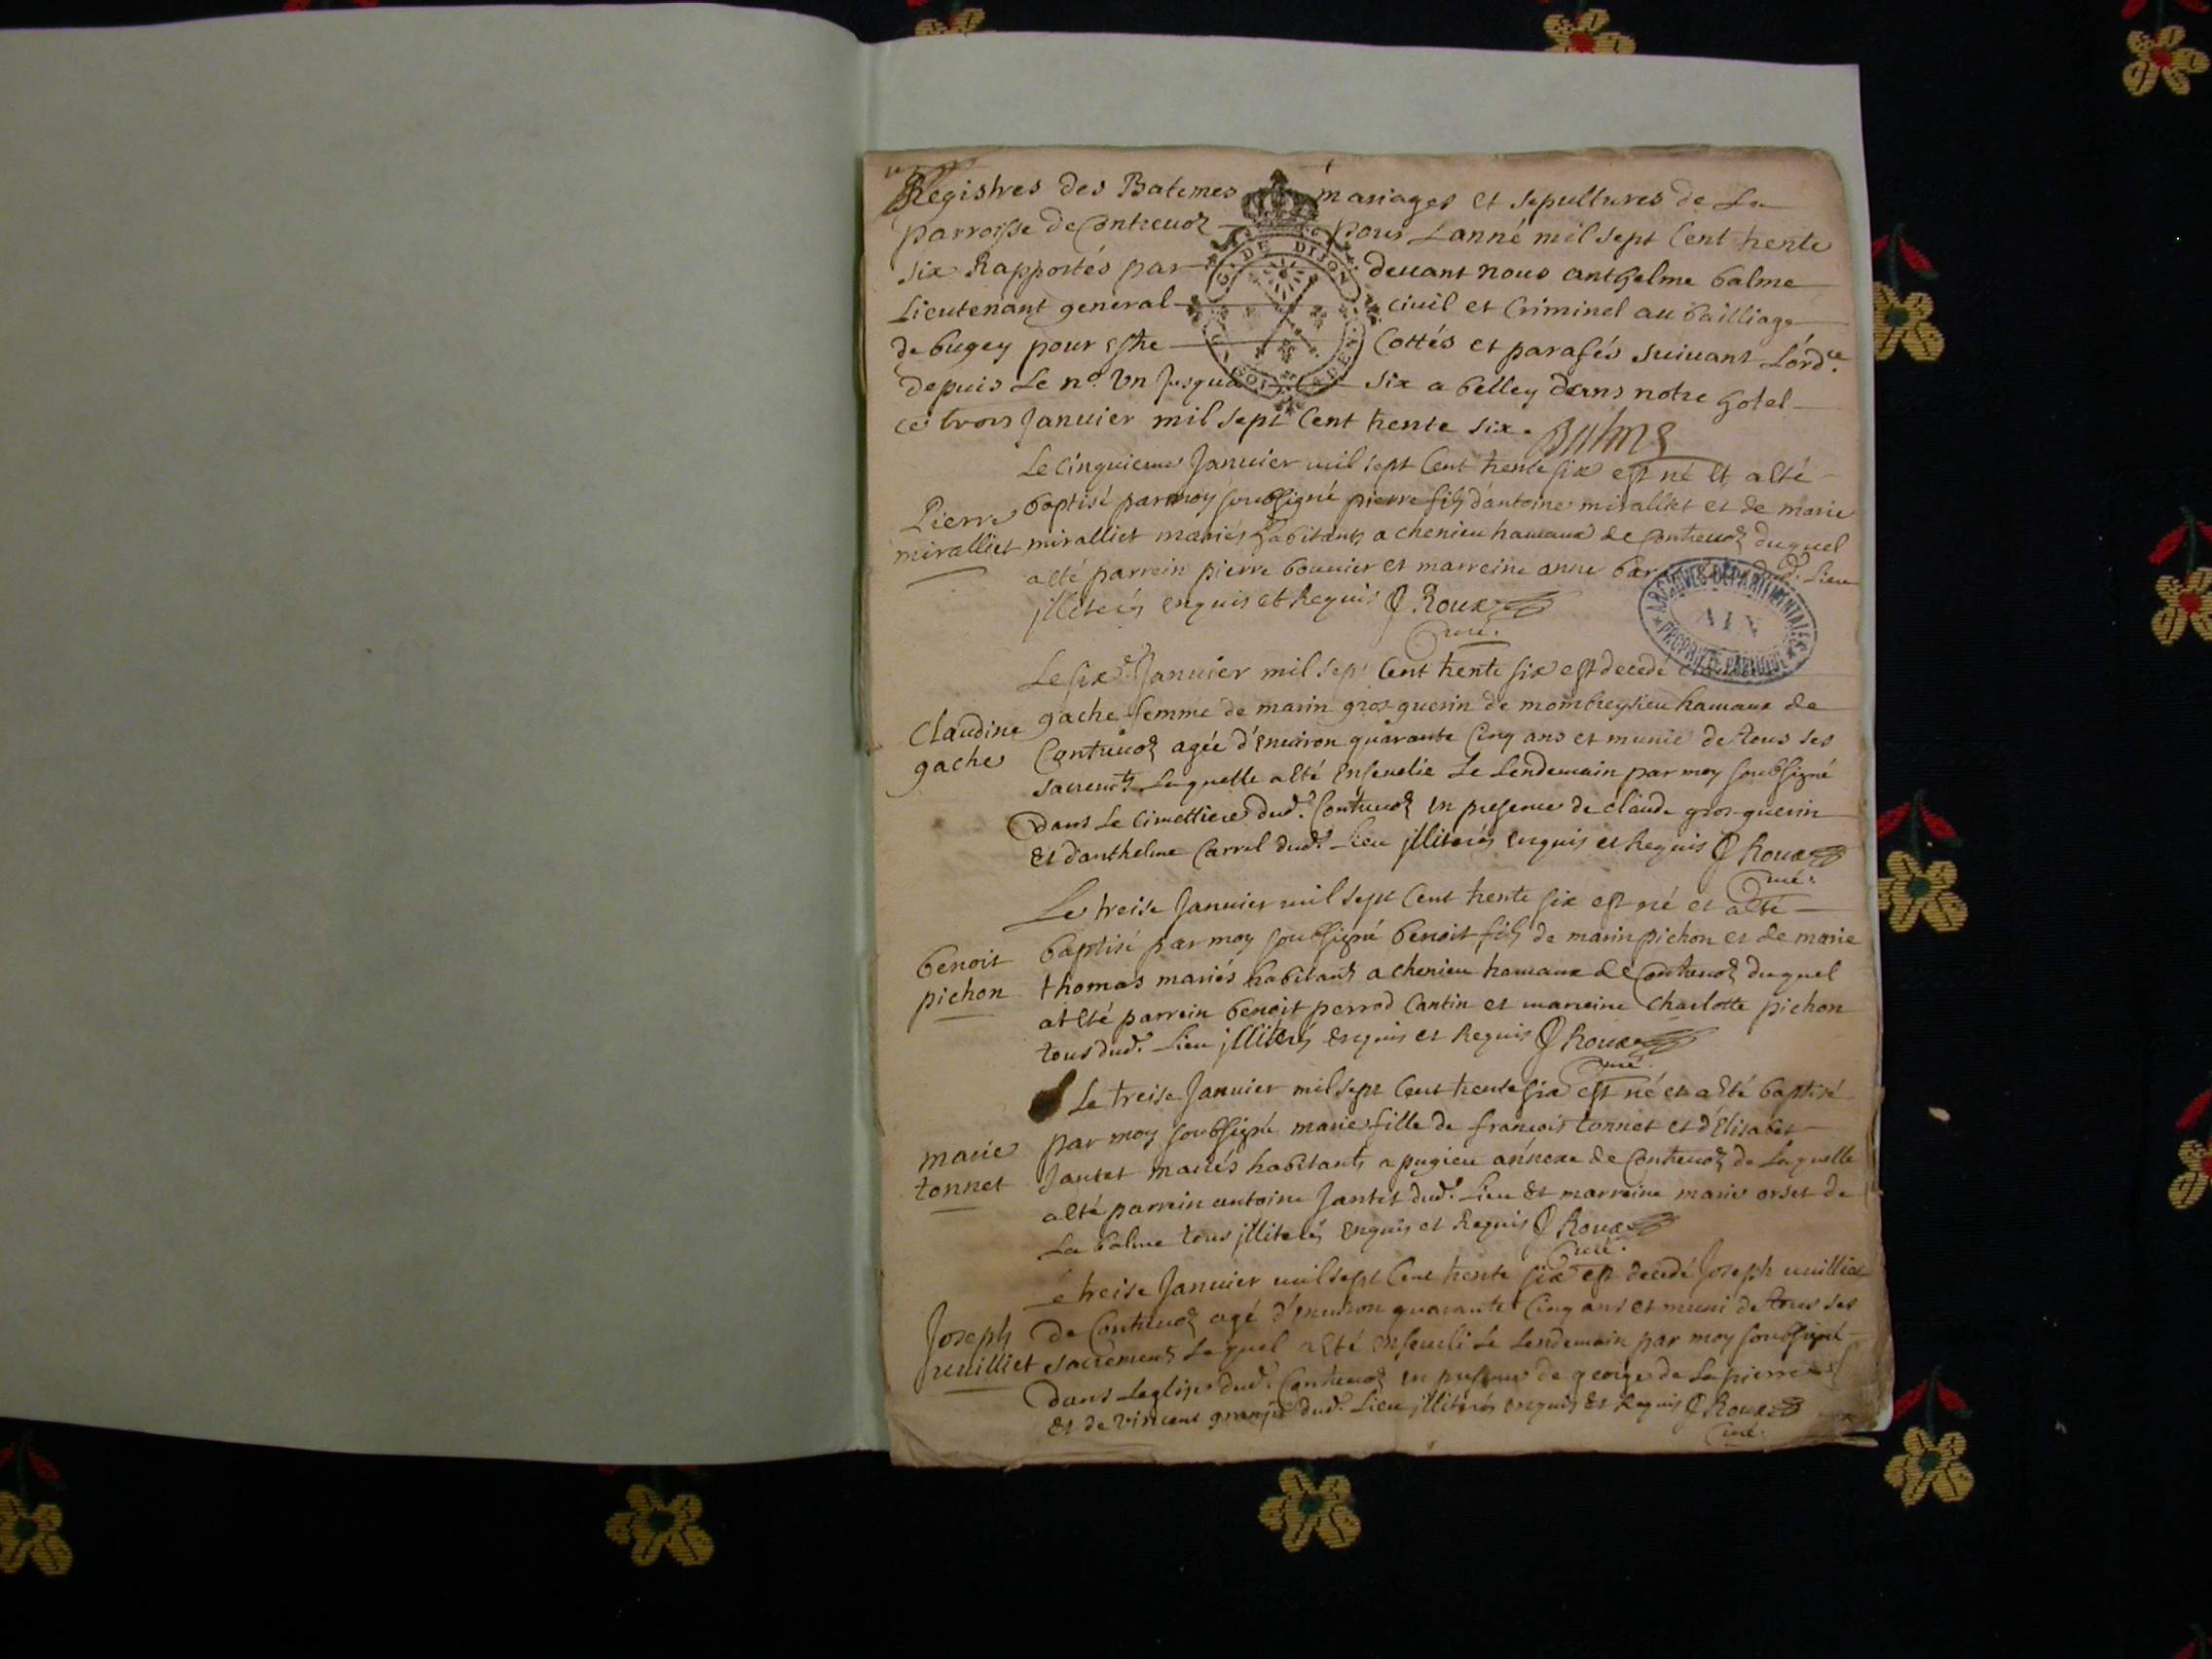 Registres des Batemes mariages et sepultures de La
parroisse de Contrevoz pour Lanné mil sept Cent trente
six Rapportés par devant nous anthelme balme
Lieutenant general civil et Criminel au bailliage
de bugey pour estre Cottés et parafés suivant L'ord.ce
depuis Le n.o Un jusqua six a belley dans notre hotel
ce trois Janvier mil sept Cent trente six. Balme
G. DE DIJON
Le cinquieme Janvier mil sept Cent trente six est né et a eté
Pierre miralliet
baptisé par moy soubsigné pierre fils d'antoine miralliet et de marie
miralliet mariés habitants a chenieu hameaux de Contrevoz duquel
a eté parrein pierre bouvier et marreine anne dud. Lieu
illiterés enquis et Requis Roux
curé.
ARCHIVES DEPARTEMENTALES
AIN
PROPRIETE PUBLIQUE
Le six.e Janvier mil sept Cent trente six est decedé
Claudine gache
gache femme de marin gros-guerin de hamaux de
Contrevoz agée d'environ quarante Cinq ans et munie de tous ses
sacremts Laquelle a eté ensevelie Le Lendemain par moy soubsigné
dans Le cimettiere dud. Contrevoz en presence de claude gros-guerin
et d'anthelme Carrel dud. Lieu illiterés enquis et Requis Roux
curé.
Le treise Janvier mil sept Cent trente six est né et a eté
benoit pichon
baptisé par moy soubsigné benoit fils de marin pichon et de marie
thomas mariés habitants a chenieu hamaux de Contrevoz duquel
at eté parrein benoit perrod Cantin et marreine Charlotte pichon
tous dud. Lieu illiterés enquis et Requis Roux
curé.
Le treise Janvier mil sept Cent trente six est né et a eté baptisé
marie tonnet
par moy soubsigné marie fille de françois tonnet et d'Elisabet
Jantet mariés habitants a pugieu annexe de Contrevoz de Laquelle
a eté parrein antoine Jantet dud. Lieu et marreine marie orset de
La balme tous illiterés enquis et Requis Roux
curé.
Le treise Janvier mil sept Cent trente six est decedé Joseph vuilliet
Joseph vuilliet
de Contrevoz agé d'environ quarante Cinq ans et muni de tous ses
sacrements Lequel a eté enseveli Le Lendemain par moy soubsigné
dans Leglise dud. Contrevoz en presence de george de Lapierre
et de vincent dud. Lieu illiterés enquis et Requis Roux
curé.